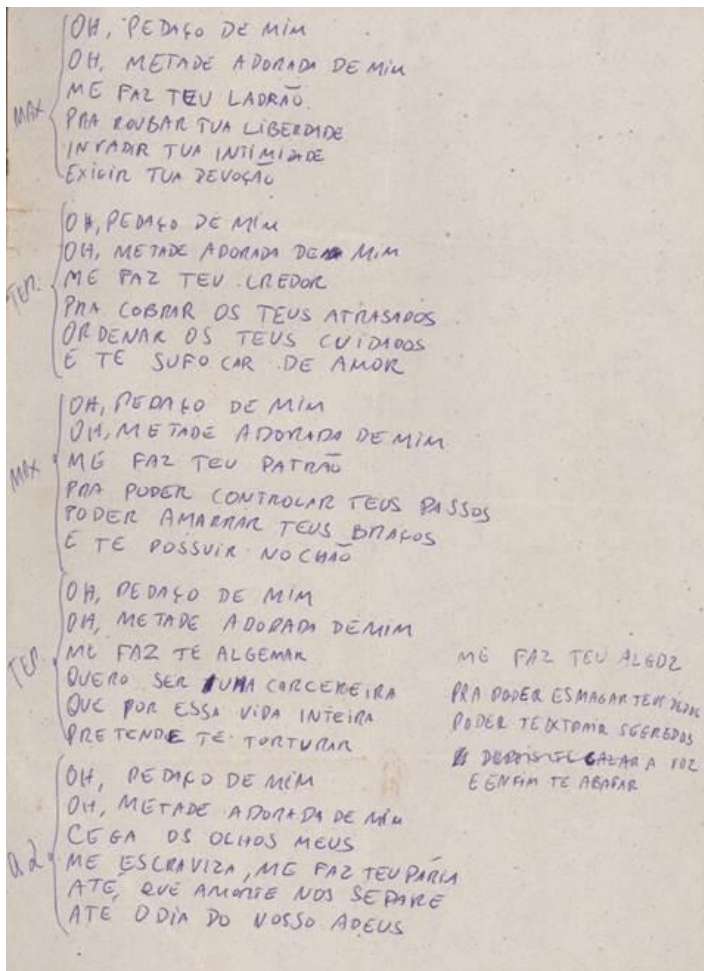 MAX
OH, PEDAÇO DE MIM
OH, METADE ADORADA DE MIM
ME FAZ TEU LADRÃO
PRA ROUBAR TUA LIBERDADE
INVADIR TUA INTIMIDADE
EXIGIR TUA DEVOÇÃO
TER.
OH, PEDAÇO DE MIM
OH, METADE ADORADA DE MIM
ME FAZ TEU CREDOR
PRA COBRAR OS TEUS ATRASADOS
ORDENAR OS TEUS CUIDADOS
E TE SUFOCAR DE AMOR
MAX
OH, PEDAÇO DE MIM
OH, METADE ADORADA DE MIM
ME FAZ TEU PATRÃO
PRA PODER CONTROLAR TEUS PASSOS
PODER AMARRAR TEUS BRAÇOS
E TE POSSUIR NO CHÃO
TER.
OH, PEDAÇO DE MIM
OH, METADE ADORADA DE MIM
ME FAZ TE ALGEMAR
QUERO SER UMA CARCEREIRA
QUE POR ESSA VIDA INTEIRA
PRETENDE TE TORTURAR
ME FAZ TEU ALGOZ
PRA PODER ESMAGAR TEUS DEDOS
PODER TE EXTRAIR SEGREDOS
DEPOIS TE CALAR A VOZ
E ENFIM TE ABAFAR
a 2
OH, PEDAÇO DE MIM
OH, METADE ADORADA DE MIM
CEGA OS OLHOS MEUS
ME ESCRAVIZA, ME FAZ TEU PÁRIA
ATÉ QUE A MORTE NOS SEPARE
ATÉ O DIA DO NOSSO ADEUS